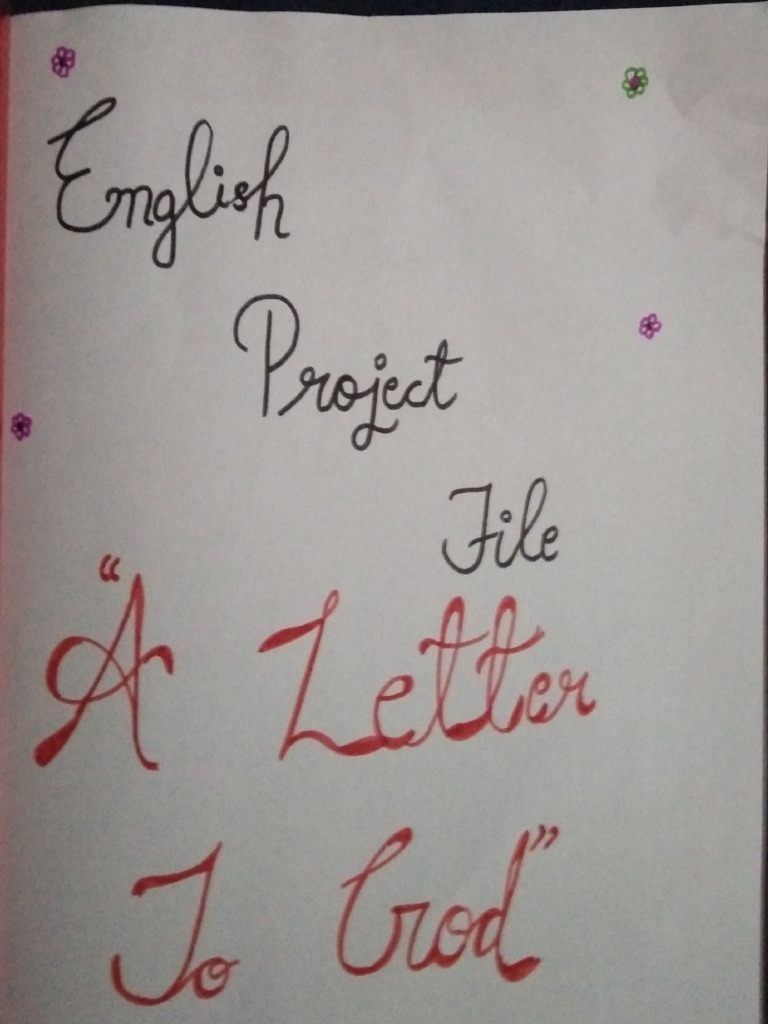 English
Project
File
“A Letter
To God”